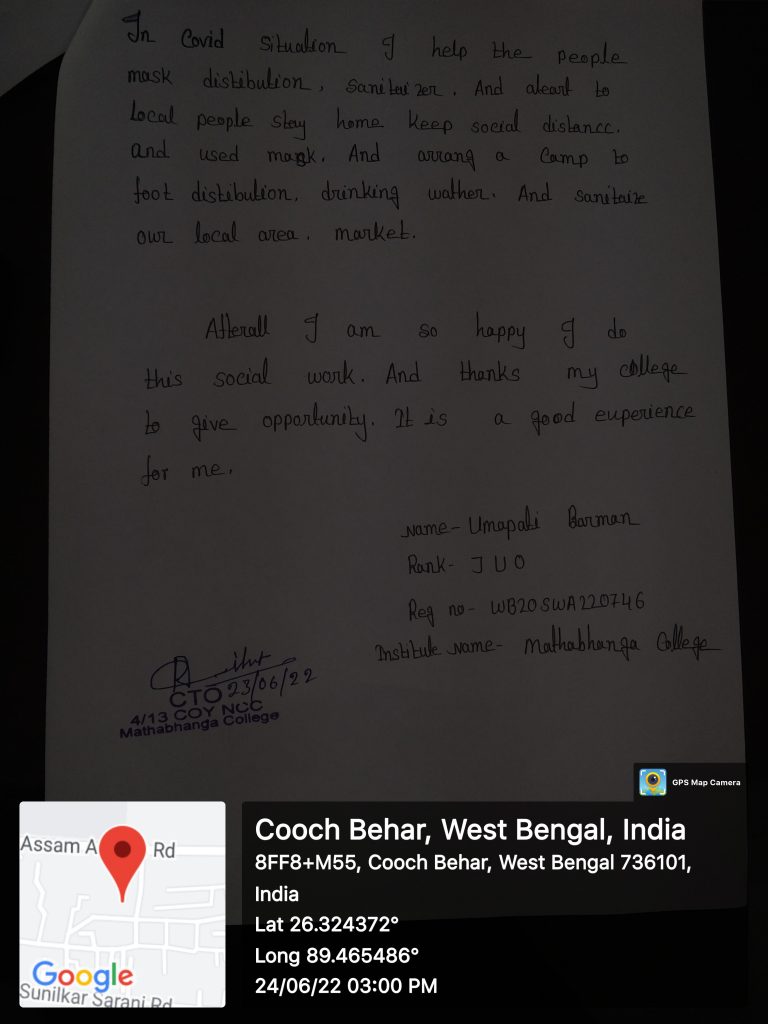 In Covid Situation I help the people
mask distibution, sanitaizer. And aleart to
local people stay home keep social distance.
and used mask. And arrang a Camp to
foot distibution, drinking wather. And sanitaize
our local area, market.
Afterall I am so happy I do
this social work. And thanks my college
to give opportunity. It is a good euperience
for me.
Name- Umapati Barman
Rank- JUO
Reg no- WB20SWA220746
Institute Name- Mathabhanga College
23/06/22
CTO
4/13 COY NCC
Mathabhanga College
GPS Map Camera
Assam A Rd
Google
Sunilkar Sarani Rd
Cooch Behar, West Bengal, India
8FF8+M55, Cooch Behar, West Bengal 736101,
India
Lat 26.324372°
Long 89.465486°
24/06/22 03:00 PM